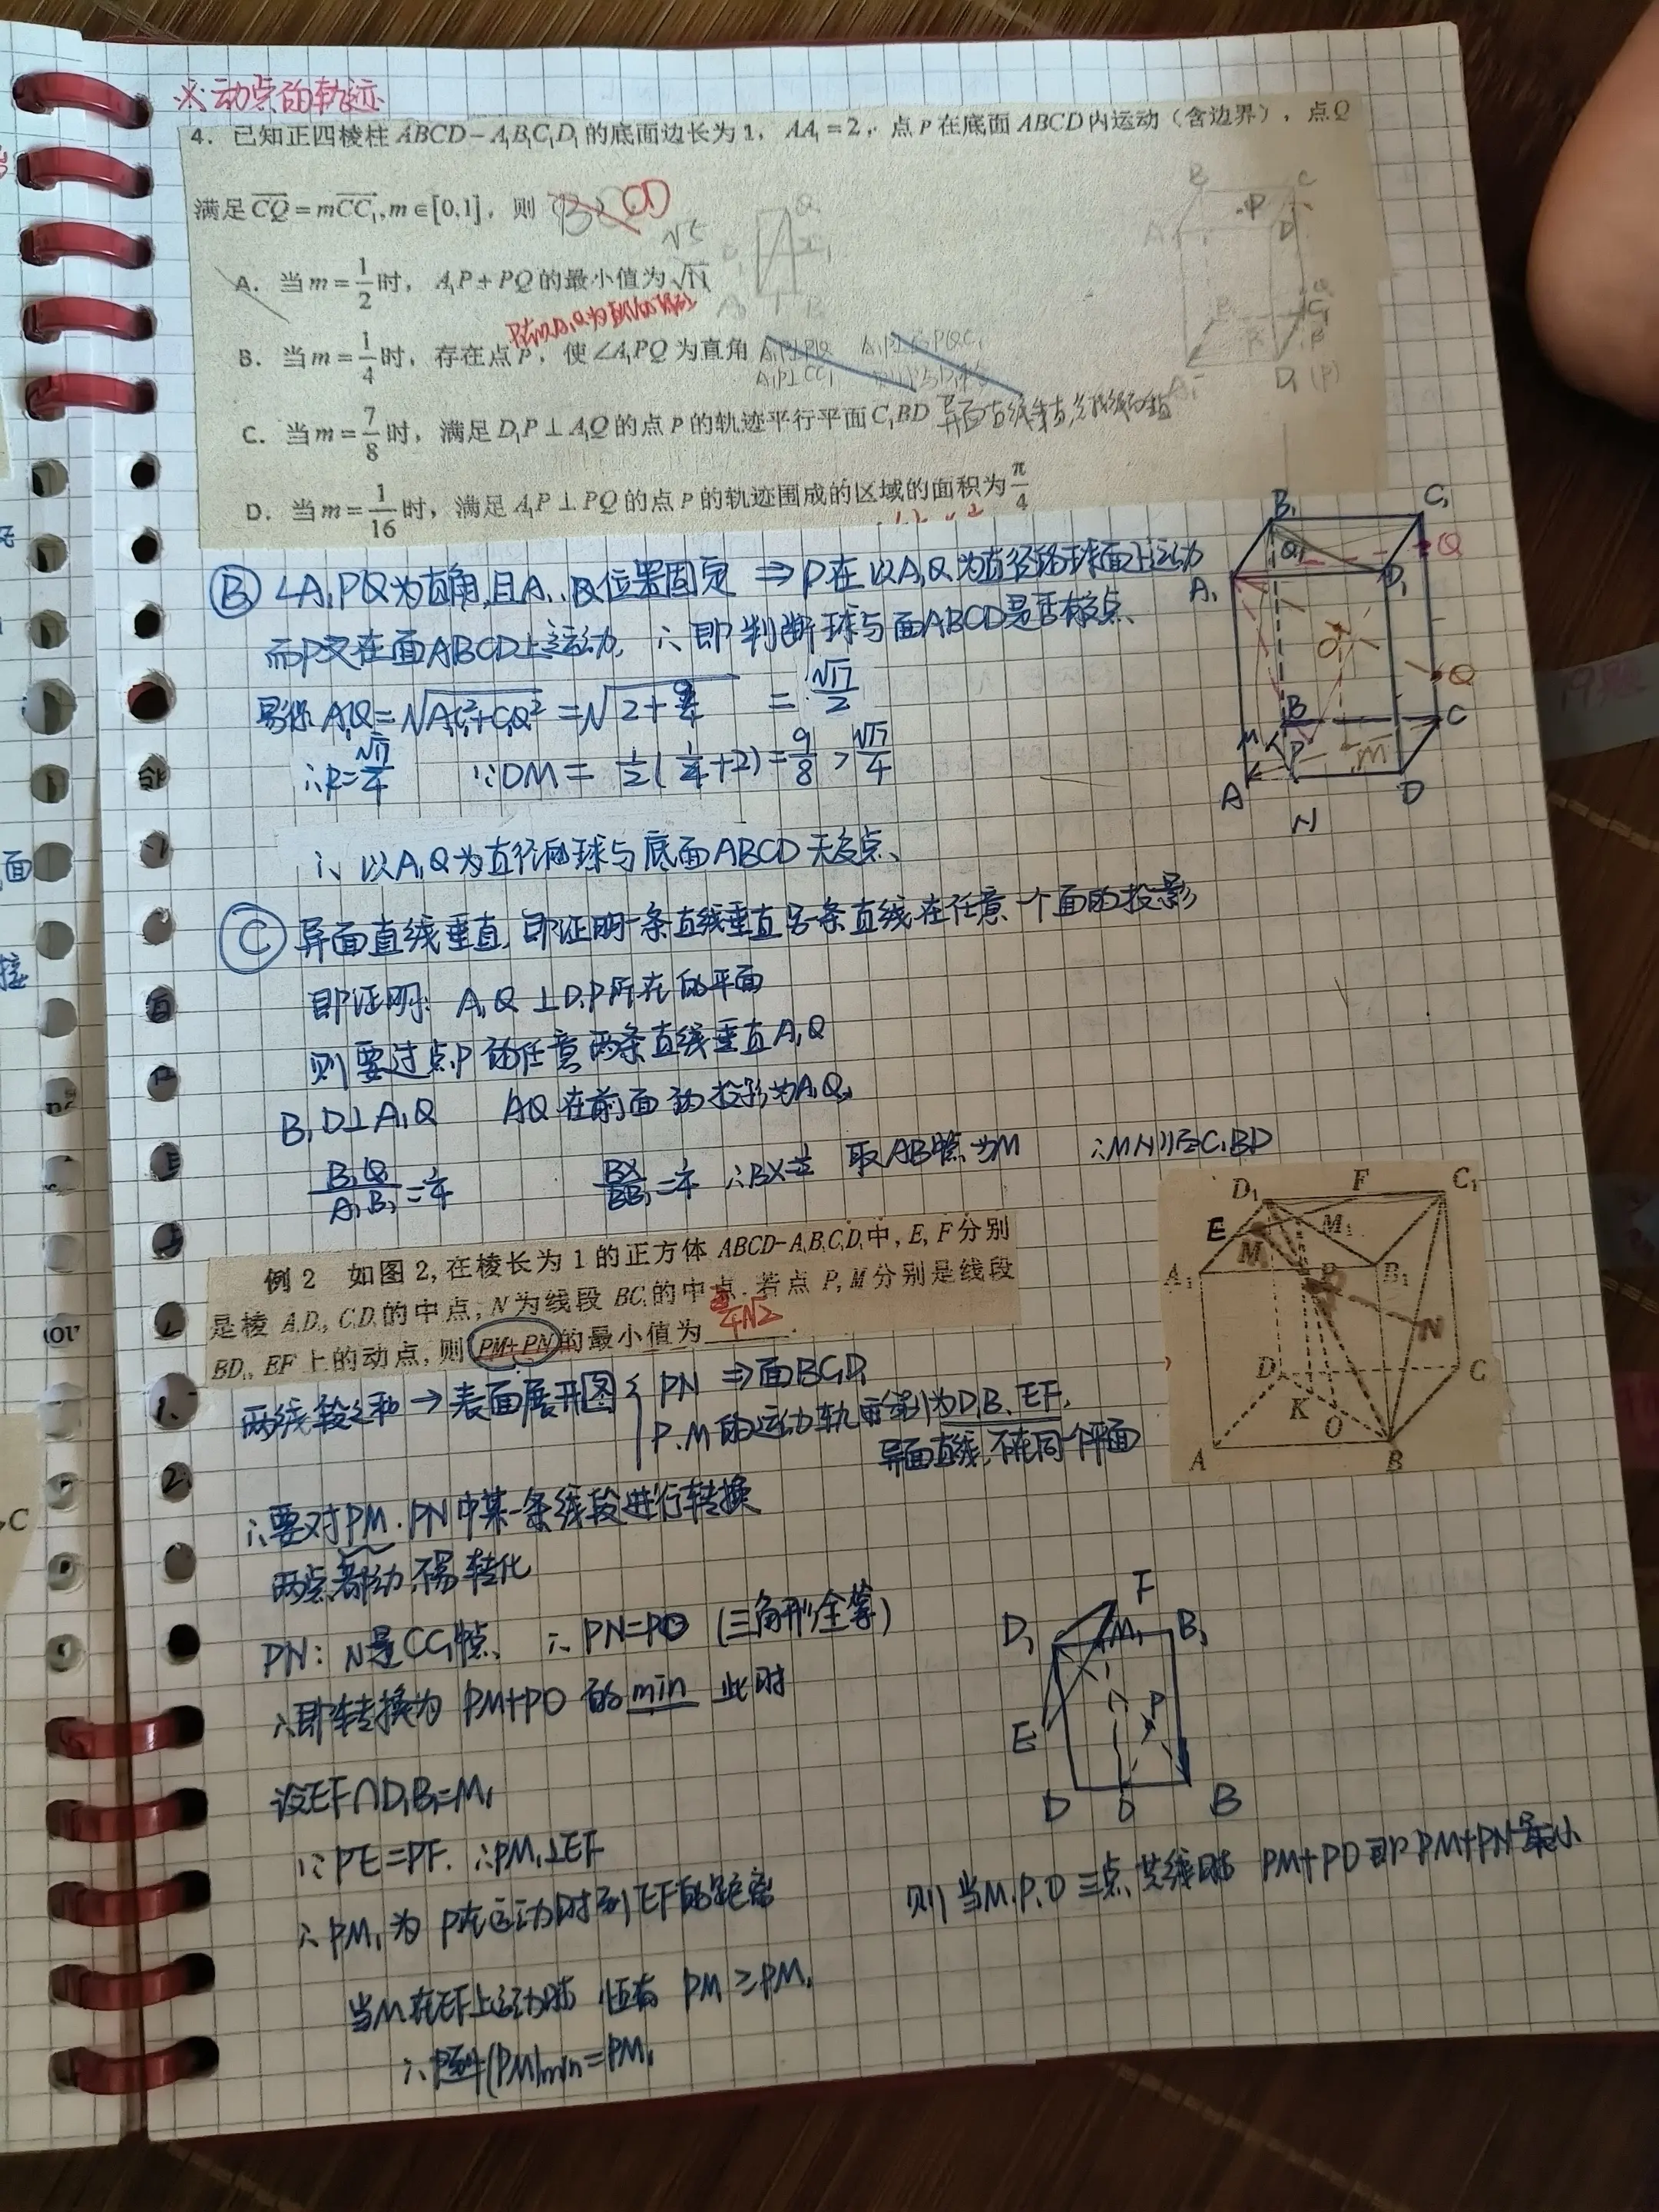 ※动点的轨迹
4. 已知正四棱柱ABCD-A₁B₁C₁D₁的底面边长为1, AA₁=2, 点P在底面ABCD内运动(含边界), 点Q
满足CQ=mCC₁, m∈[0,1], 则 CD
√5
A. 当m=1/2时, A₁P+PQ的最小值为√11
B. 当m=1/4时, 存在点P, 使∠A₁PQ为直角
C. 当m=7/8时, 满足D₁P⊥A₁Q的点P的轨迹平行平面C₁BD
D. 当m=1/16时, 满足A₁P⊥PQ的点P的轨迹围成的区域的面积为π/4
Ⓑ ∠A₁PQ为直角,且A₁、Q位置固定 ⇒ P在以A₁Q为直径的球面上运动
而P又在面ABCD上运动, ∴即判断球与面ABCD是否有交点、
易求A₁Q=√(A₁C₁²+C₁Q²)=√(2+9/4) =√17/2
∴R=√17/4 ∵OM=1/2(1/4+2)=9/8>√17/4
∴以A₁Q为直径的球与底面ABCD无交点、
Ⓒ 异面直线垂直,即证明一条直线垂直另条直线在任意一个面的投影
即证明: A₁Q⊥D₁P所在的平面
则要过点P的任意两条直线垂直A₁Q
B₁D⊥A₁Q AQ在前面的投影为A₁Q₁
B₁Q₁/A₁B₁=1/4 BX/BB₁=1/4 ∴BX=1/2 取AB中点为M ∴MN∥面C₁BD
B₁ C₁
Q₁ Q
A₁ D₁
O
Q
B C
M P M
A D
N
例2 如图2,在棱长为1的正方体ABCD-A₁B₁C₁D₁中, E, F分别
是棱A₁D₁, C₁D₁的中点, N为线段BC₁的中点. 若点P, M分别是线段
BD₁, EF上的动点, 则PM+PN的最小值为
D₁ F C₁
E M₁
M
A₁ P B₁
N
D C
K O
A B
两线段之和→表面展开图{ PN ⇒面BC₁D₁
P.M的运动轨迹分别为D₁B、EF,
异面直线,不在同一个平面
∴要对PM.PN中某一条线段进行转换
两点都动,不易转化
PN: N是CC₁中点、 ∴PN=PO (三角形全等)
∴即转换为PM+PO的min 此时
设EF∩D₁B₁=M₁
∵PE=PF. ∴PM₁⊥EF
∴PM₁为P在运动时到EF的距离
当M在EF上运动时 恒有 PM≥PM₁
(PM)min=PM₁
F
D₁ M₁ B₁
P
E
D O B
则当M.P.O三点共线时 PM+PO即PM+PN最小